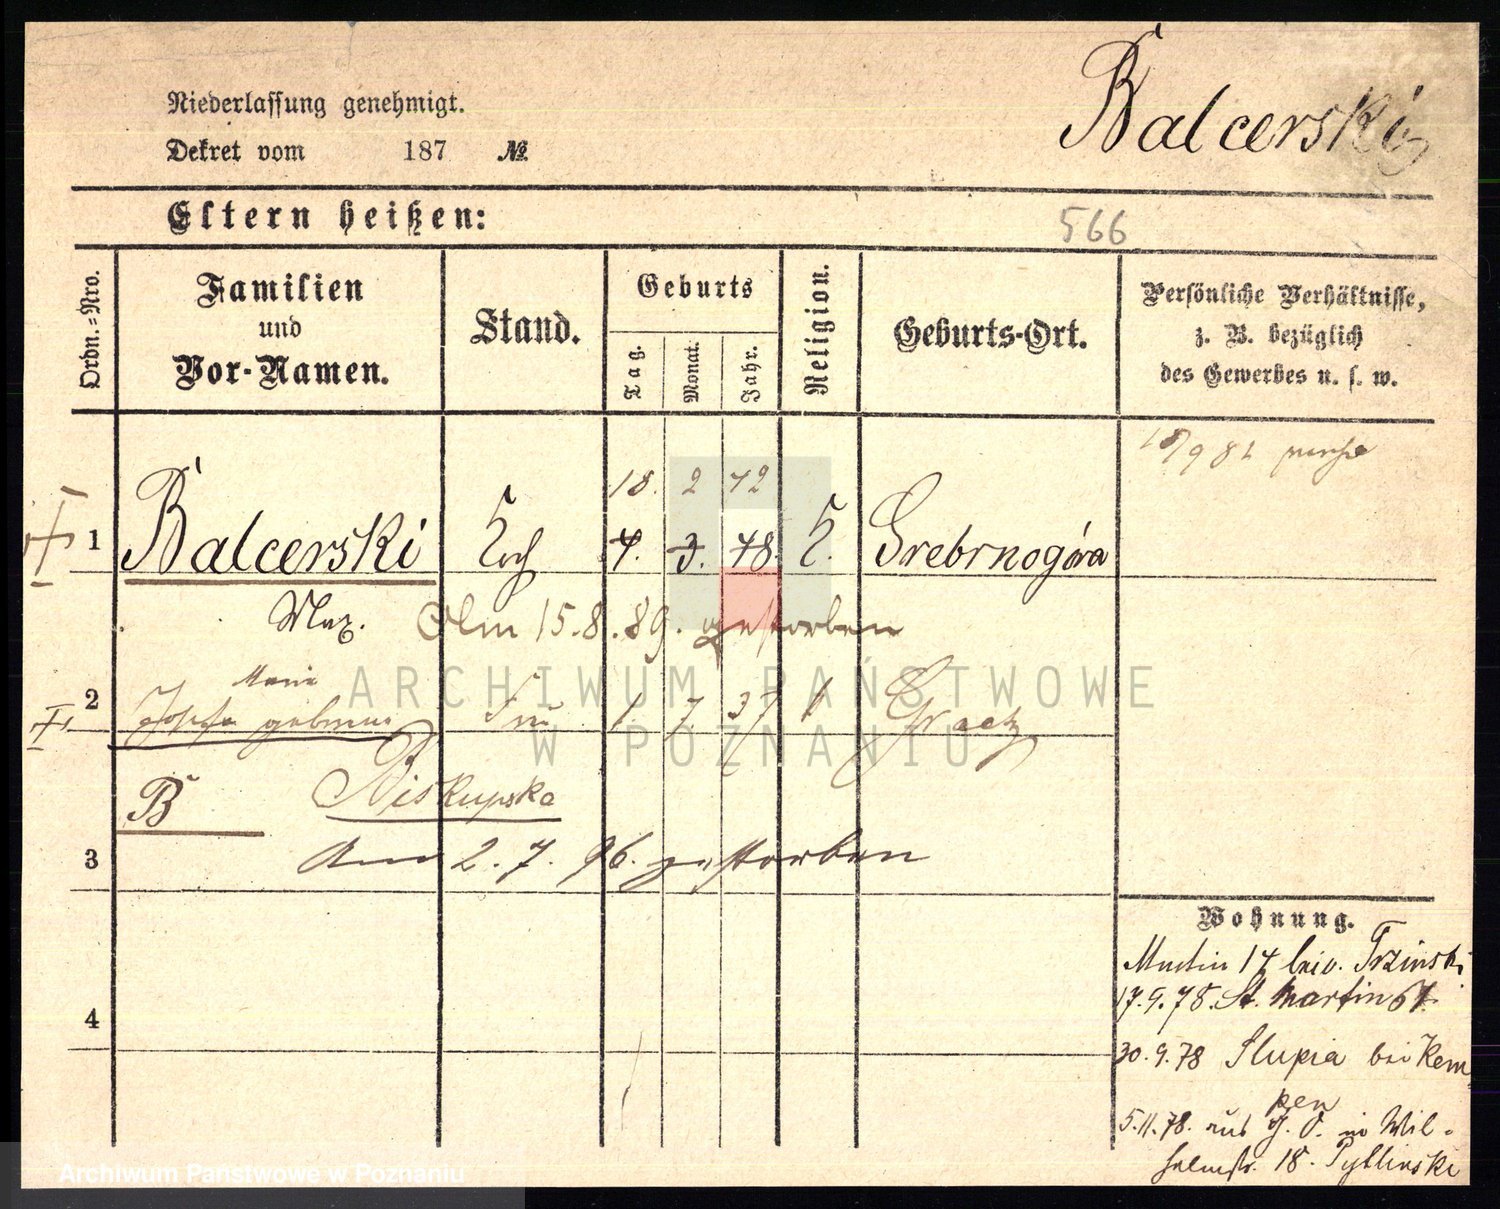 Balcerski
Niederlassung genehmigt.
Dekret vom 187 №
Eltern heißen:
566
Ordn.=Nro.
Familien
und
Vor-Namen.
Stand.
Geburts
Tag.
Monat.
Jahr.
Religion.
Geburts-Ort.
Persönliche Verhältnisse,
z. B. bezüglich
des Gewerbes u. s. w.
18/9 81
18. 2 42
1 Balcerski Koch 4. 3. 48. K. Srebrnogóra
Max. Am 15.8.89. gestorben
Maria
2 Josefa geborene 1. 7. 37 Graetz
B Biskupska
3 Am 2. 7. 96. gestorben
4
Wohnung.
Martin 17 bei v. Trzinski
17.9.78. St. Martin 67.
30.9.78 Slupia bei Kem
pen
5.11.78. aus g. O. in Wil-
helmstr. 18. Pytlinski
ARCHIWUM PAŃSTWOWE
W POZNANIU
Archiwum Państwowe w Poznaniu